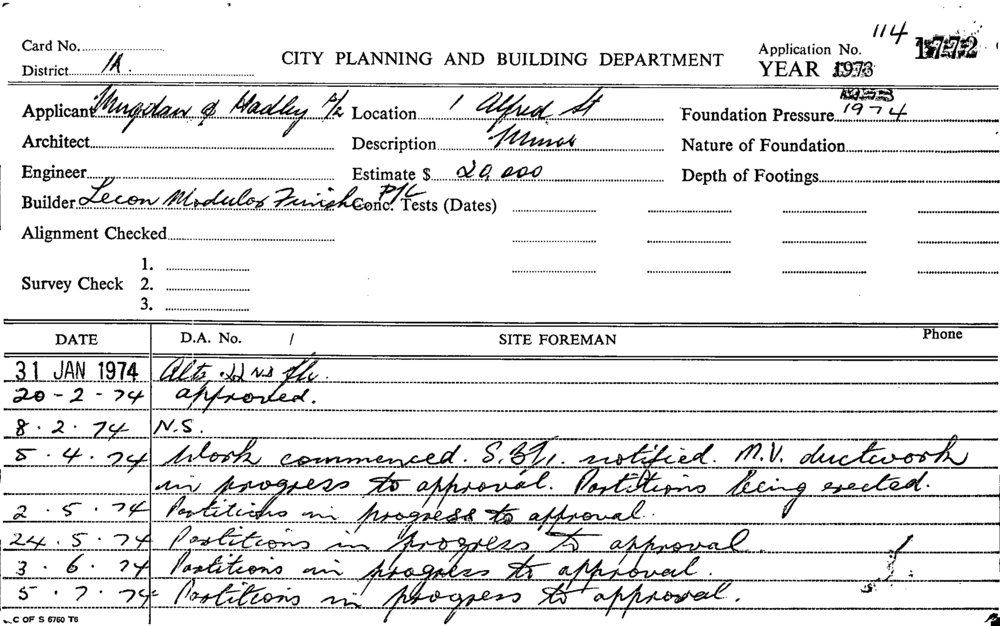 Card No. 114 1772
CITY PLANNING AND BUILDING DEPARTMENT Application No.
District 1A. YEAR 1973
Applicant & Hadley P/L Location 1 Alfred St Foundation Pressure 1974
Architect Description Minor Nature of Foundation
Engineer Estimate $ 20,000 Depth of Footings
Builder Lecon Modular Finish P/L Conc. Tests (Dates)
Alignment Checked
1.
Survey Check 2.
3.
DATE D.A. No. / SITE FOREMAN Phone
31 JAN 1974 Alts. 22nd flr.
20-2-74 approved.
8.2.74 N.S.
5.4.74 Work commenced. notified. M.V. ductwork
in progress to approval. Partitions being erected.
2.5.74 Partitions in progress to approval.
24.5.74 Partitions in progress to approval.
3.6.74 Partitions in progress to approval.
5.7.74 Partitions in progress to approval.
C OF S 6760 T6